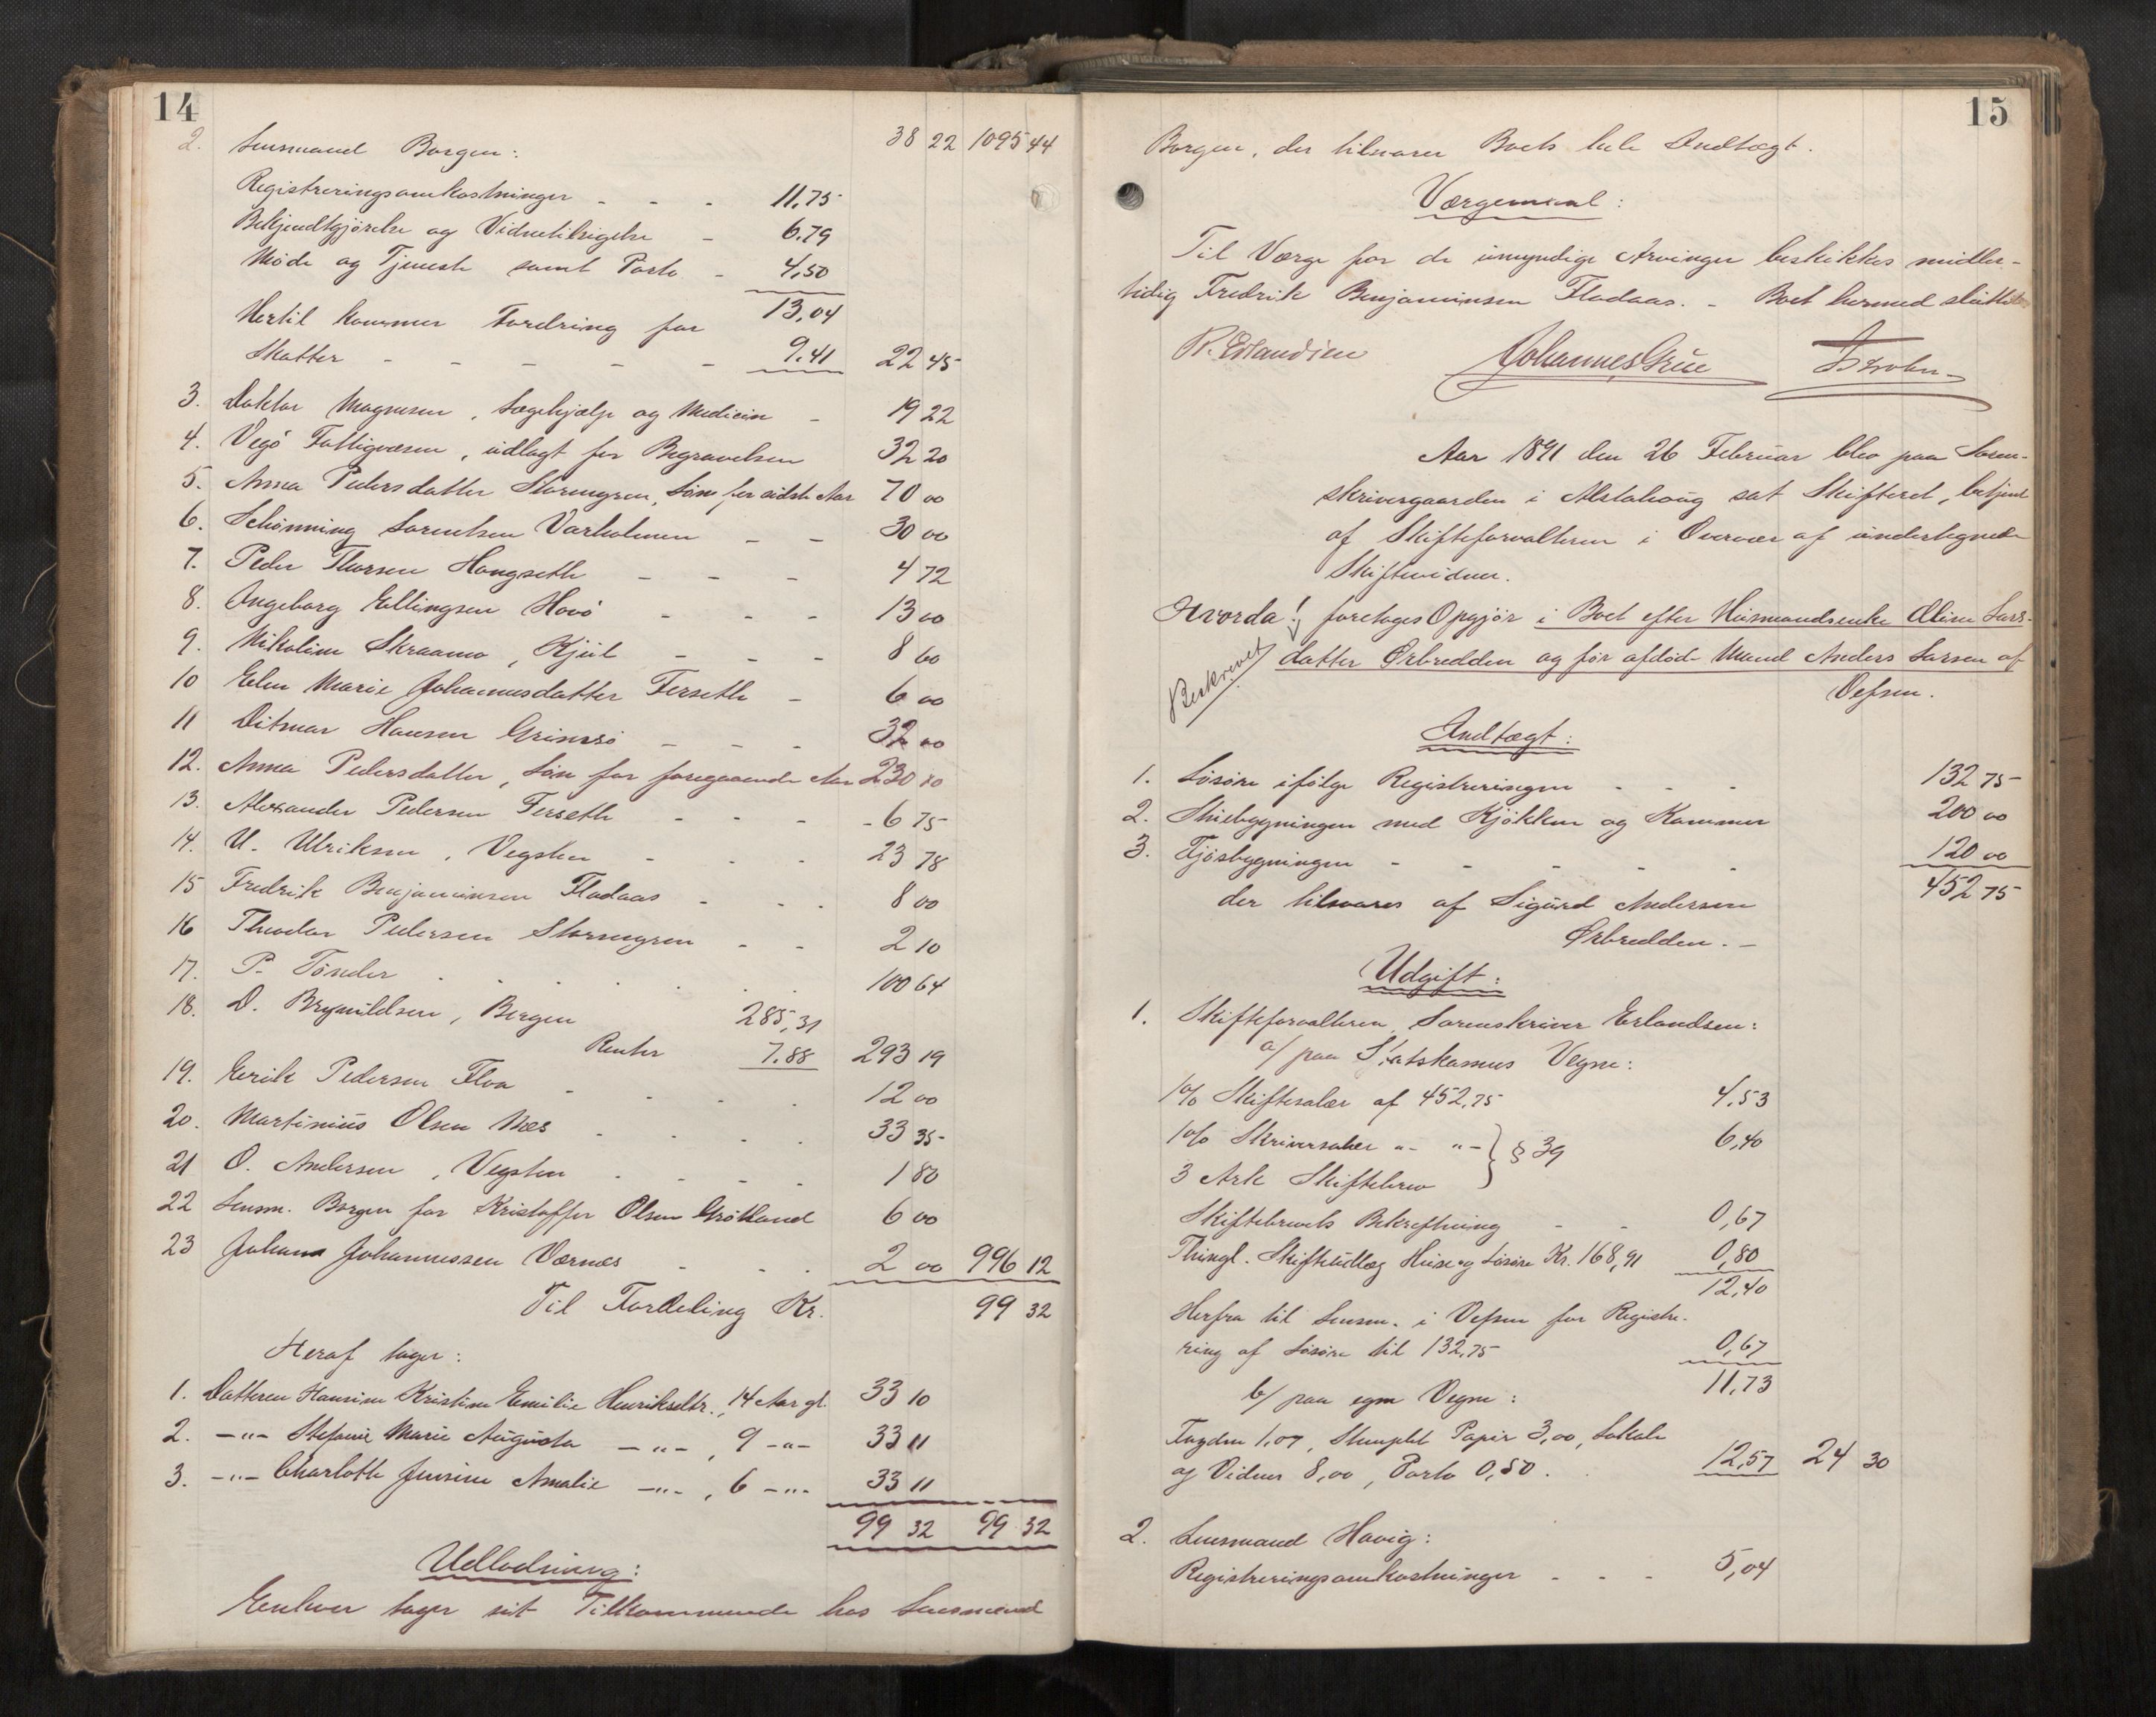 14
2. Lensmand Borgen: 38 22 1095 44
Registreringsomkostninger - - - 11,75
Bekjendtgjørelse og Vidnetilsigelse - 6.79
Møde og Tjeneste samt Porto - 4,50
13,04
Hertil kommer Fordring for
Skatter - - - - - 9.41 22 45
3. Doktor Magnesen, Lægehjælp og Medicin - 19 22
4. Vegø Fattigvæsen, udlagt for Begravelsen 32 20
5. Anna Pedersdatter Storengren, Løn for sidste Aar 70 00
6. Schønning Sørensen Varholmen - - 30 00
7. Peder Thorsen Hongseth - - - 4 72
8. Ingeborg Ellingsen Hovø - - - 13 00
9. Nikoline Skraamo, Kjul - - - 8 60
10 Elen Marie Johannesdatter Ferseth - 6 00
11 Ditmar Hansen Grimsø - - - 32 00
12. Anna Pedersdatter, Løn for foregaaende Aar 230 80
13. Alexander Pedersen Ferseth - - - - 6 75
14. U. Ulriksen, Vegsten - - - 23 78
15 Fredrik Benjaminsen Fladaas - - - 8 00
16 Theodor Pedersen Storengren - - 2 10
17. P. Tønder - - - - - 100 64
18. D. Brynildsen, Bergen 285,31
Renter 7.88 293 19
19. Eerik Pedersen Floa - - - - 12 00
20. Martinius Olsen Næs - - - - 33 35
21 O. Andersen, Vegsten - - - - 1 80
22 Lensm. Borgen for Kristoffer Olsen Grøtland 6 00
23 Johan Johannessen Værnes - - - 2 00 996 12
Til Fordeling Kr. 99 32
Heraf tager:
1. Datteren Hansine Kristine Emilie Henriksdtr., 14 Aar gl. 33 10
2. -"- Stefanie Marie Augusta -"-, 9 -"- 33 11
3. -"- Charlotte Jensine Amalie -"-, 6 -"- 33 11
99 32 99 32
Udlodning:
Enhver tager sit Tilkommende hos Lensmand
15
Borgen, der tilsvarer Boets hele Indtægt.
Værgemaal:
Til Værge for de umyndige Arvinger beskikkes midler-
tidig Fredrik Benjaminsen Fladaas. - Boet hermed sluttet
R. Erlandsen Johannes Grue
Aar 1891 den 26 Februar blev paa Soren-
skrivergaarden i Alstahoug sat Skifteret, betjent
af Skifteforvalteren i Overvær af undertegnede
Skiftevidner.
Hvorda! foretoges Opgjør i Boet efter Husmandsenke Oline Lars-
Beskrevet datter Ørbredden og før afdøde Mand Anders Larsen af
Vefsen.
Indtægt:
1. Løsøre ifølge Registreringen - - - 132 75
2. Stuebygningen med Kjøkken og Kammer 200 00
3. Fjøsbygningen - - - - - 120 00
452 75
der tilsvares af Sigurd Andersen
Ørbredden. -
Udgift:
1. Skifteforvalteren, Sorenskriver Erlandsen:
a/ paa Statskassens Vegne:
1% Skiftesalær af 452,75 4,53
1% Skriversalær "- "- } § 39 6,40
3 Ark Skiftebrev
Skiftebrevets Bekræftning - - 0,67
Thingl. Skifteudlæg Huse og Løsøre Kr. 168,91 0,80
12,40
Herfra til Lensm. i Vefsen for Registre-
ring af Løsøre til 132,75 0,67
11,73
b/ paa egne Vegne:
1,07, Stemplet Papir 3,00, Lokale
og Vidner 8,00, Porto 0,50. 12,57 24 30
2. Lensmand Havig:
Registreringsomkostninger - - - 5,04